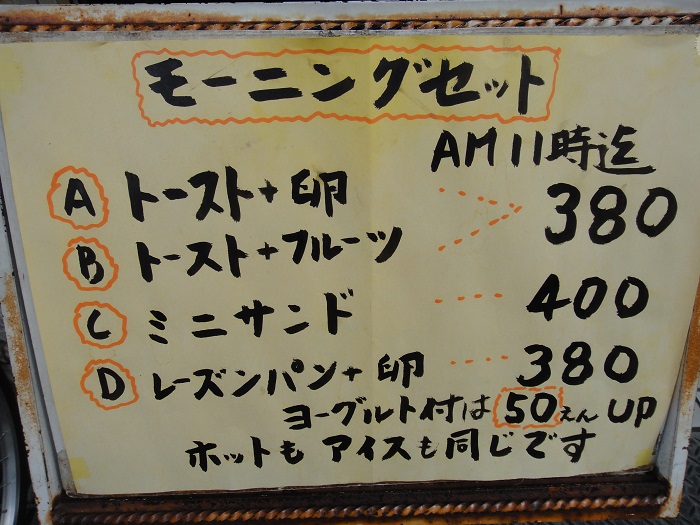 モーニングセット
AM11時迄
A トースト+卵
B トースト+フルーツ 380
C ミニサンド .... 400
D レーズンパン+卵 .... 380
ヨーグルト付は 50えん UP
ホットも アイスも同じです